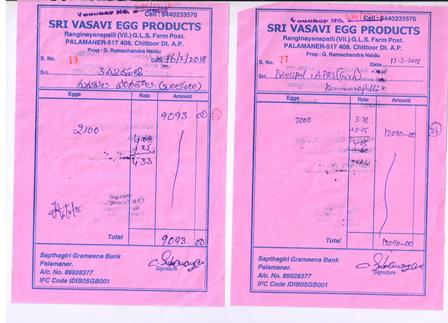 Cell : 9440233576
SRI VASAVI EGG PRODUCTS
Ranginayanapalli (Vil.) G.L.S. Farm Post.
PALAMANER-517 408. Chittoor Dt. A.P.
Prop : G. Ramachandra Naidu
S. No.
Date 16/2/2018
Sri.
Eggs Rate Amount
2100 9093.00
4.08
.25
4.33
Total 9093.00
Sapthagiri Grameena Bank
Palamaner.
A/c No. 89928377
IFC Code IDIB0SGB001
Signature
Cell : 9440233576
SRI VASAVI EGG PRODUCTS
Ranginayanapalli (Vil.) G.L.S. Farm Post.
PALAMANER-517 408. Chittoor Dt. A.P.
Prop : G. Ramachandra Naidu
S. No. 77
Date 12-2-2018
Sri. Principal, APRS (Girls)
Eggs Rate Amount
3000 3-78 12090-00
Total 12090-00
Sapthagiri Grameena Bank
Palamaner.
A/c No. 89928377
IFC Code IDIB0SGB001
Signature